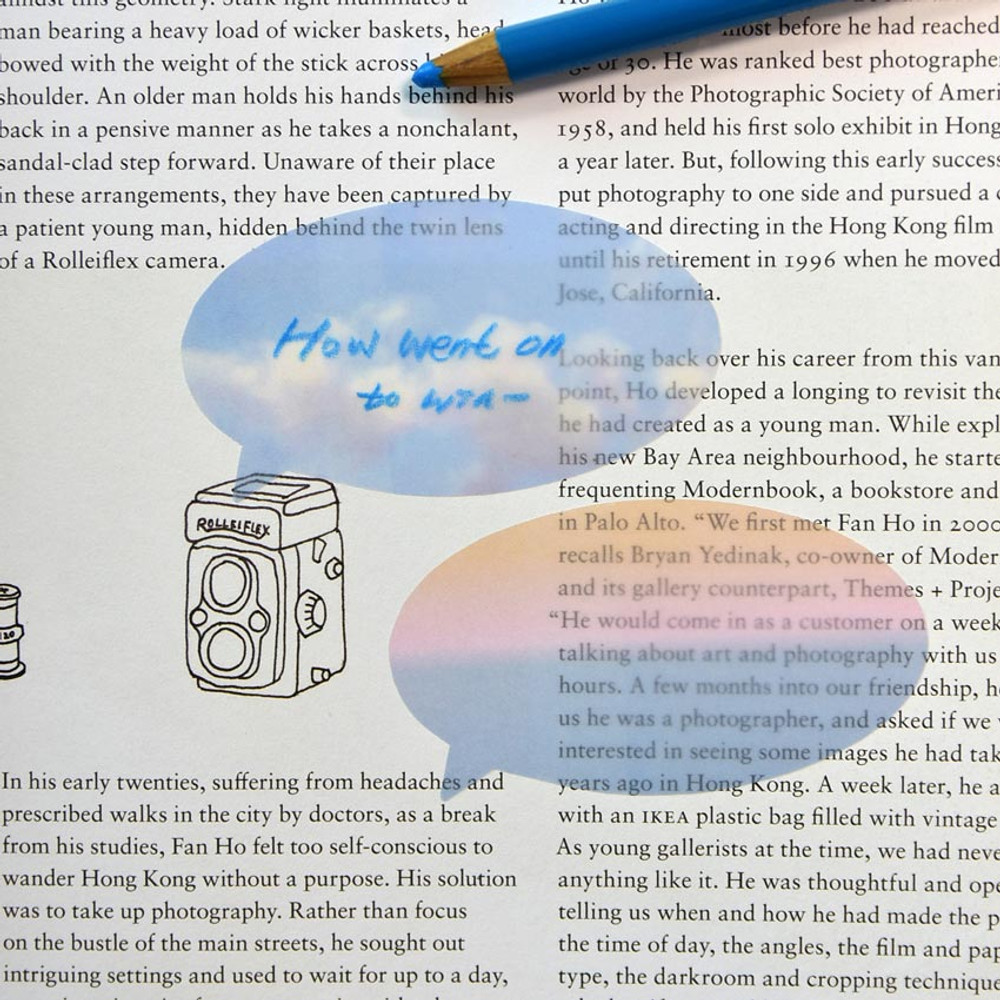 man bearing a heavy load of wicker baskets, head
bowed with the weight of the stick across
shoulder. An older man holds his hands behind his
back in a pensive manner as he takes a nonchalant,
sandal-clad step forward. Unaware of their place
in these arrangements, they have been captured by
a patient young man, hidden behind the twin lens
of a Rolleiflex camera.
How went on
to
ROLLEIFLEX
120
In his early twenties, suffering from headaches and
prescribed walks in the city by doctors, as a break
from his studies, Fan Ho felt too self-conscious to
wander Hong Kong without a purpose. His solution
was to take up photography. Rather than focus
on the bustle of the main streets, he sought out
intriguing settings and used to wait for up to a day,
most before he had reached
or 30. He was ranked best photographe
world by the Photographic Society of Ameri
1958, and held his first solo exhibit in Hong
a year later. But, following this early success
put photography to one side and pursued a
acting and directing in the Hong Kong film
until his retirement in 1996 when he moved
Jose, California.
Looking back over his career from this van
point, Ho developed a longing to revisit the
he had created as a young man. While expl
his new Bay Area neighbourhood, he starte
frequenting Modernbook, a bookstore and
in Palo Alto. “We first met Fan Ho in 2000
recalls Bryan Yedinak, co-owner of Moder
and its gallery counterpart, Themes + Proje
“He would come in as a customer on a week
talking about art and photography with us
hours. A few months into our friendship, he
us he was a photographer, and asked if we
interested in seeing some images he had tak
years ago in Hong Kong. A week later, he a
with an IKEA plastic bag filled with vintage
As young gallerists at the time, we had neve
anything like it. He was thoughtful and ope
telling us when and how he had made the p
the time of day, the angles, the film and pap
type, the darkroom and cropping technique